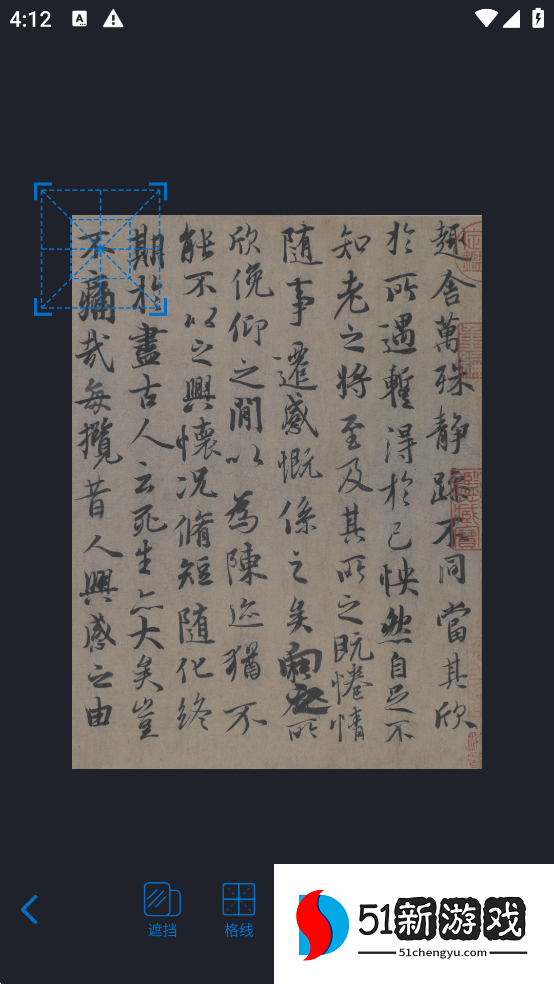 4:12
A
趣舍萬殊静躁不同當其欣
於所遇暫得於己怏然自足不
知老之將至及其所之既惓情
隨事遷感慨係之矣向之所
欣俛仰之閒以為陳迹猶不
能不以之興懷况脩短隨化終
期於盡古人云死生亦大矣豈
不痛哉每攬昔人興感之由
遮挡
格线
51新游戏
51chengyu.com